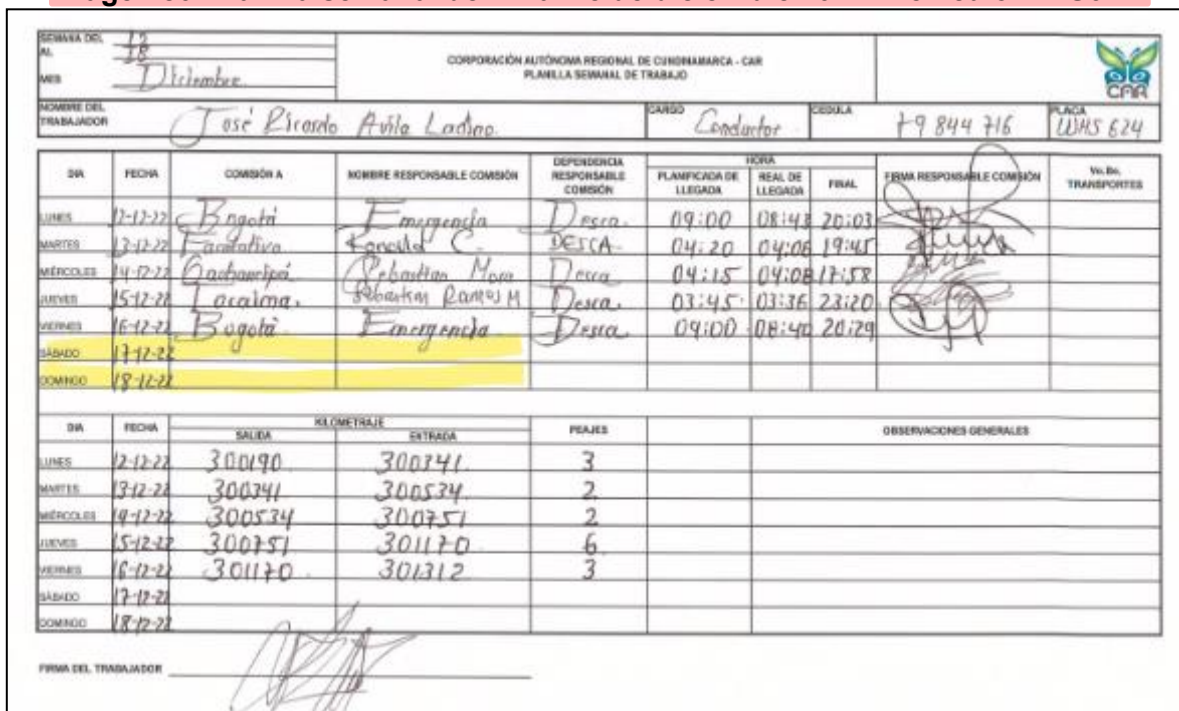 SEMANA DEL 12
AL 18
MES Diciembre
CORPORACIÓN AUTÓNOMA REGIONAL DE CUNDINAMARCA - CAR
PLANILLA SEMANAL DE TRABAJO
CAR
NOMBRE DEL TRABAJADOR José Ricardo Avila Ladino CARGO Conductor CEDULA 79 844 716 PLACA WHS 624
DIA FECHA COMISIÓN A NOMBRE RESPONSABLE COMISIÓN DEPENDENCIA RESPONSABLE COMISIÓN HORA PLANIFICADA DE LLEGADA REAL DE LLEGADA FINAL FIRMA RESPONSABLE COMISIÓN Vo.Bo. TRANSPORTES
LUNES 12-12-22 Bogotá Emergencia Desca. 09:00 08:43 20:03
MARTES 13-12-22 Facatativa C. DESCA 04:20 04:06 19:45
MIÉRCOLES 14-12-22 Sebastian Mora Desca 04:15 04:08 17:58
JUEVES 15-12-22 Sebastian Ramos M Desca. 03:45 03:36 23:20
VIERNES 16-12-22 Bogotá Emergencia Desca 09:00 08:40 20:29
SÁBADO 17-12-22
DOMINGO 18-12-22
DIA FECHA KILOMETRAJE SALIDA ENTRADA PEAJES OBSERVACIONES GENERALES
LUNES 12-12-22 300190 300341 3
MARTES 13-12-22 300341 300534 2
MIÉRCOLES 14-12-22 300534 300751 2
JUEVES 15-12-22 300751 301170 6
VIERNES 16-12-22 301170 301312 3
SÁBADO 17-12-22
DOMINGO 18-12-22
FIRMA DEL TRABAJADOR